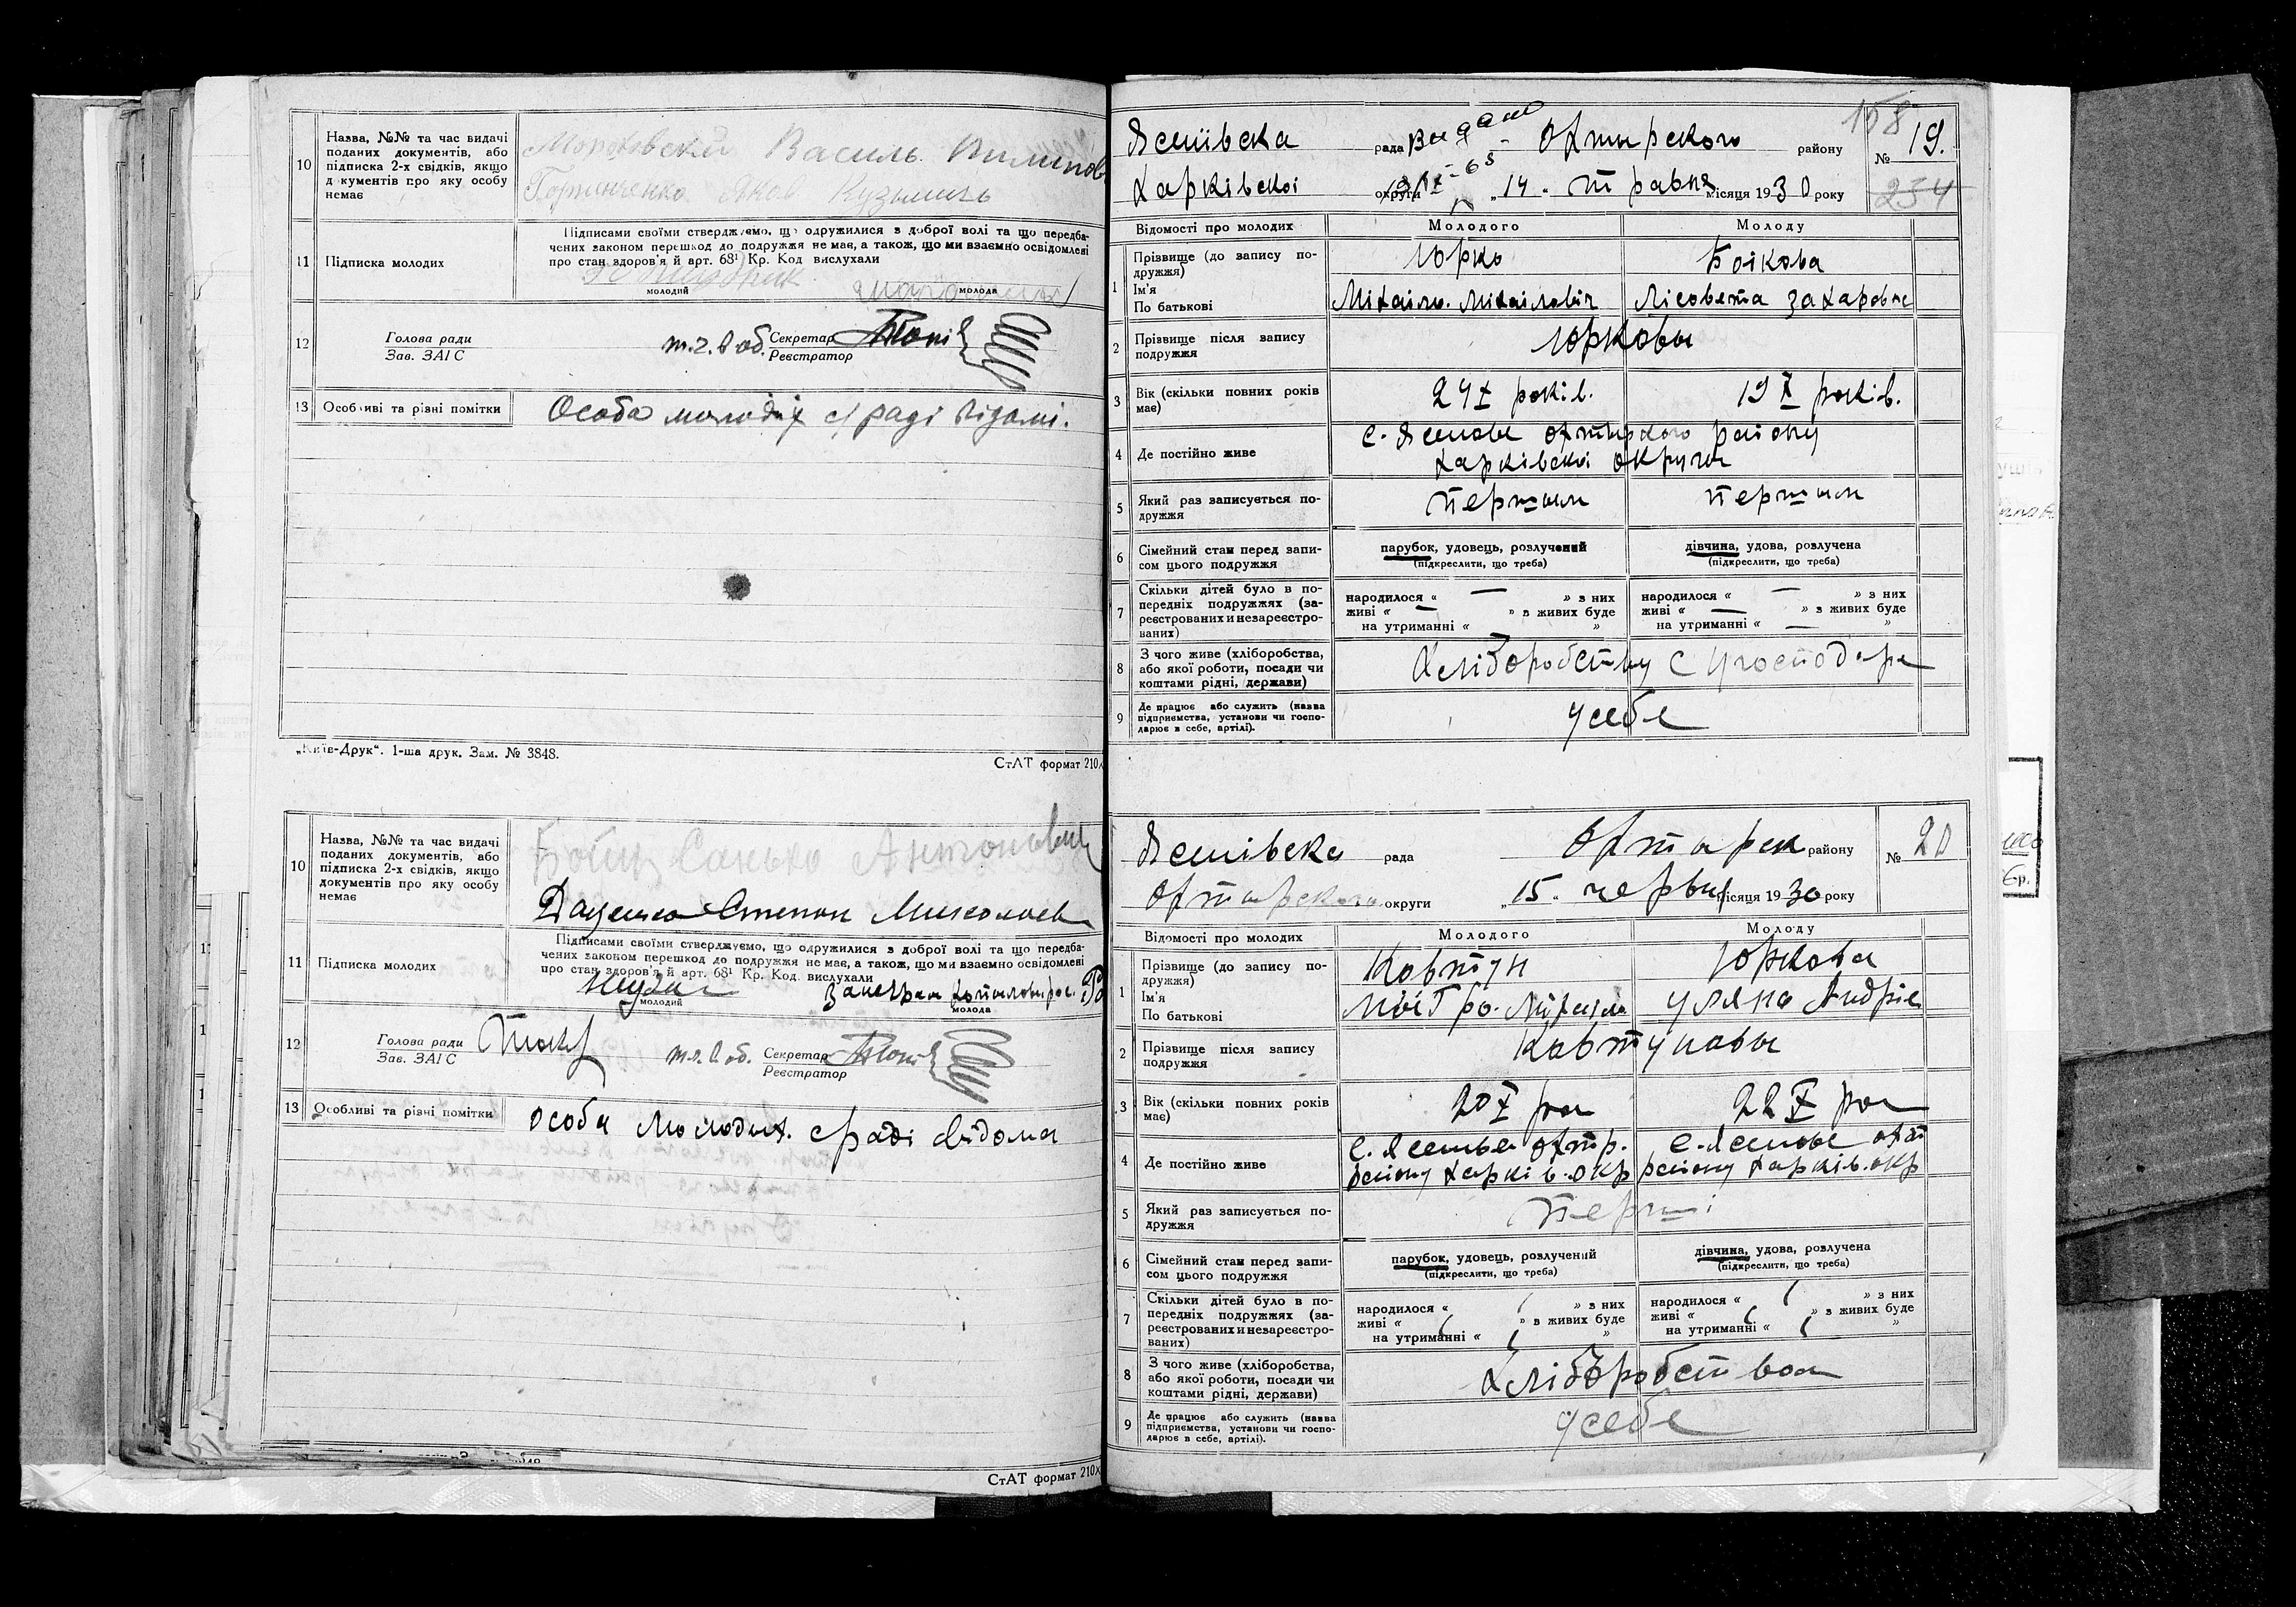 10
Назва, №№ та час видачі
поданих документів, або
підписка 2-х свідків, якщо
д кументів про яку особу
немає
Василь
Яков Кузьмичь
11
Підписка молодих
Підписами своїми стверджуємо, що одружилися з доброї волі та що передба-
чених законом перешкод до подружжя не має, а також, що ми взаємно освідомлені
про стан здоров'я й арт. 68¹ Кр. Код вислухали
молодий
молода
12
Голова ради
Зав. ЗАГС
т. ч. в об. Секретар
Реєстратор
13
Особливі та різні помітки
Особа молодих с/раді відомі.
„Київ-Друк“. 1-ша друк. Зам. № 3848.
СтАТ формат 210
10
Назва, №№ та час видачі
поданих документів, або
підписка 2-х свідків, якщо
документів про яку особу
немає
Санько Антонович
Степан Миколаев
11
Підписка молодих
Підписами своїми стверджуємо, що одружилися з доброї волі та що передба-
чених законом перешкод до подружжя не має, а також, що ми взаємно освідомлені
про стан здоров'я й арт. 68¹ Кр. Код. вислухали
молодий
молода
12
Голова ради
Зав. ЗАГС
т. ч. в об. Секретар
Реєстратор
13
Особливі та різні помітки
особи молодых. с раді відома
СтАТ формат 210
158
Ясенівська рада Охтирского району
№ 19.
Харківскоі округи „14„ травня місяця 1930 року
234
Відомості про молодих
Молодого
Молоду
1
Прізвище (до запису по-
дружжя)
Ім'я
По батькові
Юрко
Боікова
Міхаіло. Міхаіловіч
Лісовета Захаровне
2
Прізвище після запису
подружжя
Юрковы
3
Вік (скільки повних років
має)
24 X років.
19 X років.
4
Де постійно живе
с. Ясенове Охтирского раіону
Харківскоі округи
5
Який раз записується по-
дружжя
першым
першым
6
Сімейний стан перед запи-
сом цього подружжя
парубок, удовець, розлучений
(підкреслити, що треба)
дівчина, удова, розлучена
(підкреслити, що треба)
7
Скільки дітей було в по-
передніх подружжях (за-
реєстрованих и незареєстро-
ваних)
народилося « — » з них
живі « — » в живих буде
на утриманні « — »
народилося « — » з них
живі « — » в живих буде
на утриманні « — »
8
З чого живе (хліборобства,
або якої роботи, посади чи
коштами рідні, держави)
Хліборобству с у господаре
9
Де працює або служить (назва
підприємства, установи чи госпо-
дарює в себе, артілі).
у себе
Ясенівска рада Охтирск району
№ 20
Охтирского округи „15„ червня місяця 1930 року
Відомості про молодих
Молодого
Молоду
1
Прізвище (до запису по-
дружжя)
Ім'я
По батькові
Ковтун
Юркова
Уляна Андріе
2
Прізвище після запису
подружжя
Ковтуновы
3
Вік (скільки повних років
має)
20 X рок
22 X рок
4
Де постійно живе
с. Ясенове Охтр.
раіону Харків. окр
с. Ясенове охт
раіону Харків. окр
5
Який раз записується по-
дружжя
перші
6
Сімейний стан перед запи-
сом цього подружжя
парубок, удовець, розлучений
(підкреслити, що треба)
дівчина, удова, розлучена
(підкреслити, що треба)
7
Скільки дітей було в по-
передніх подружжях (за-
реєстрованих и незареєстро-
ваних)
народилося « » з них
живі « » в живих буде
на утриманні « »
народилося « » з них
живі « » в живих буде
на утриманні « »
8
З чого живе (хліборобства,
або якої роботи, посади чи
коштами рідні, держави)
Хліборобством
9
Де працює або служить (назва
підприємства, установи чи госпо-
дарює в себе, артілі).
у себе